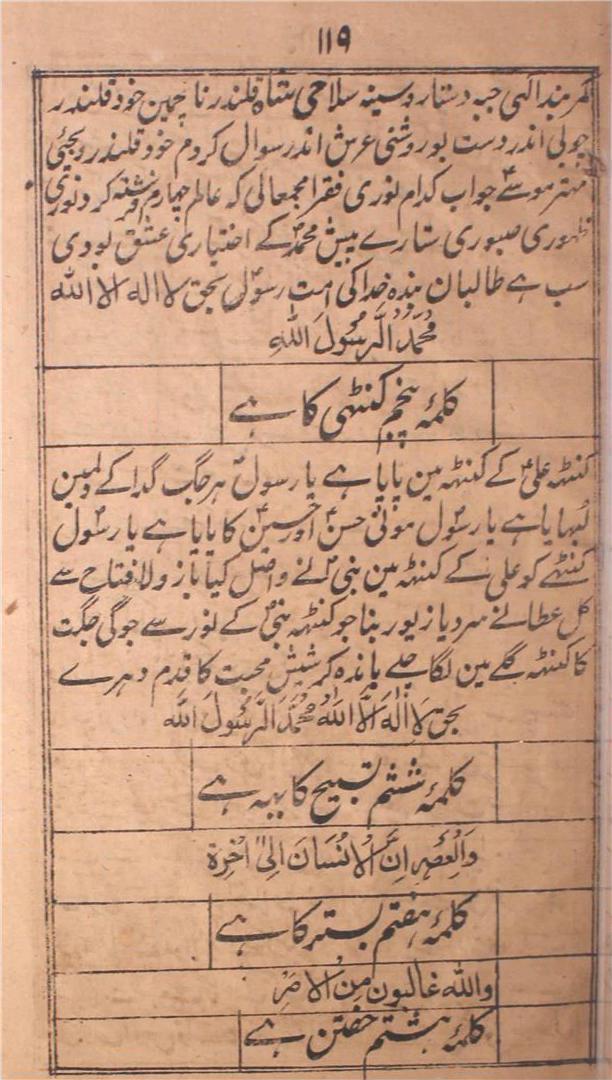 ۱۱۹
کمر بند الٰہی جبہ دستار و سینہ سلاحی شاہ قلندر نا چمین خود قلندر
چوبی اندر دست بو روشنی عرش اندر سوال کردم خود قلندر
مہتر موسےٰ جواب کدام نوری فقرا مجمعالی کہ عالم چہارم کرد نوری
ظہوری صبوری ستارے پیش محمدؐ کے اختیاری عشق بودی
سب ہے طالبان بندہ خدا کی امت رسولؐ بحق لا الہ الا اللہ
مُحَمَّدُ الرَّسُولُ اللهِ
کلمۂ پنجم کنٹھی کا ہے
کنٹھ علیؑ کے کنٹھ مین پایا ہے یا رسولؐ ہر جگ گدا کے دلمین
لبہایا ہے یا رسولؐ موتی حسنؑ اور حسینؑ کا پایا ہے یا رسولؐ
کنٹھے کو علی کے کنٹھ مین نبیؐ نے واصل کیا باز ولا فتاح سے
کل عطا نے سر دیا زیور بنا جو کنٹھ نبیؐ کے نور سے جوگی جگت
کا کنٹھ گلے مین لگا چلے باندہ کمر شیش محبت کا قدم دہرے
بحق لَا اِلٰهَ اِلَّا اللهُ مُحَمَّدَ الرَّسُولَ اللهِ
کلمۂ ششم تسبیح کا یہہ ہے
وَالْعَصْرِ اِنَّ الْاِنْسَانَ اِلیٰ اٰخِرَة
کلمۂ ہفتم بستر کا ہے
وَاللهُ غَالِبُون مِنَ الْاَمْرِ
کلمۂ ہشتم خفتن ہے